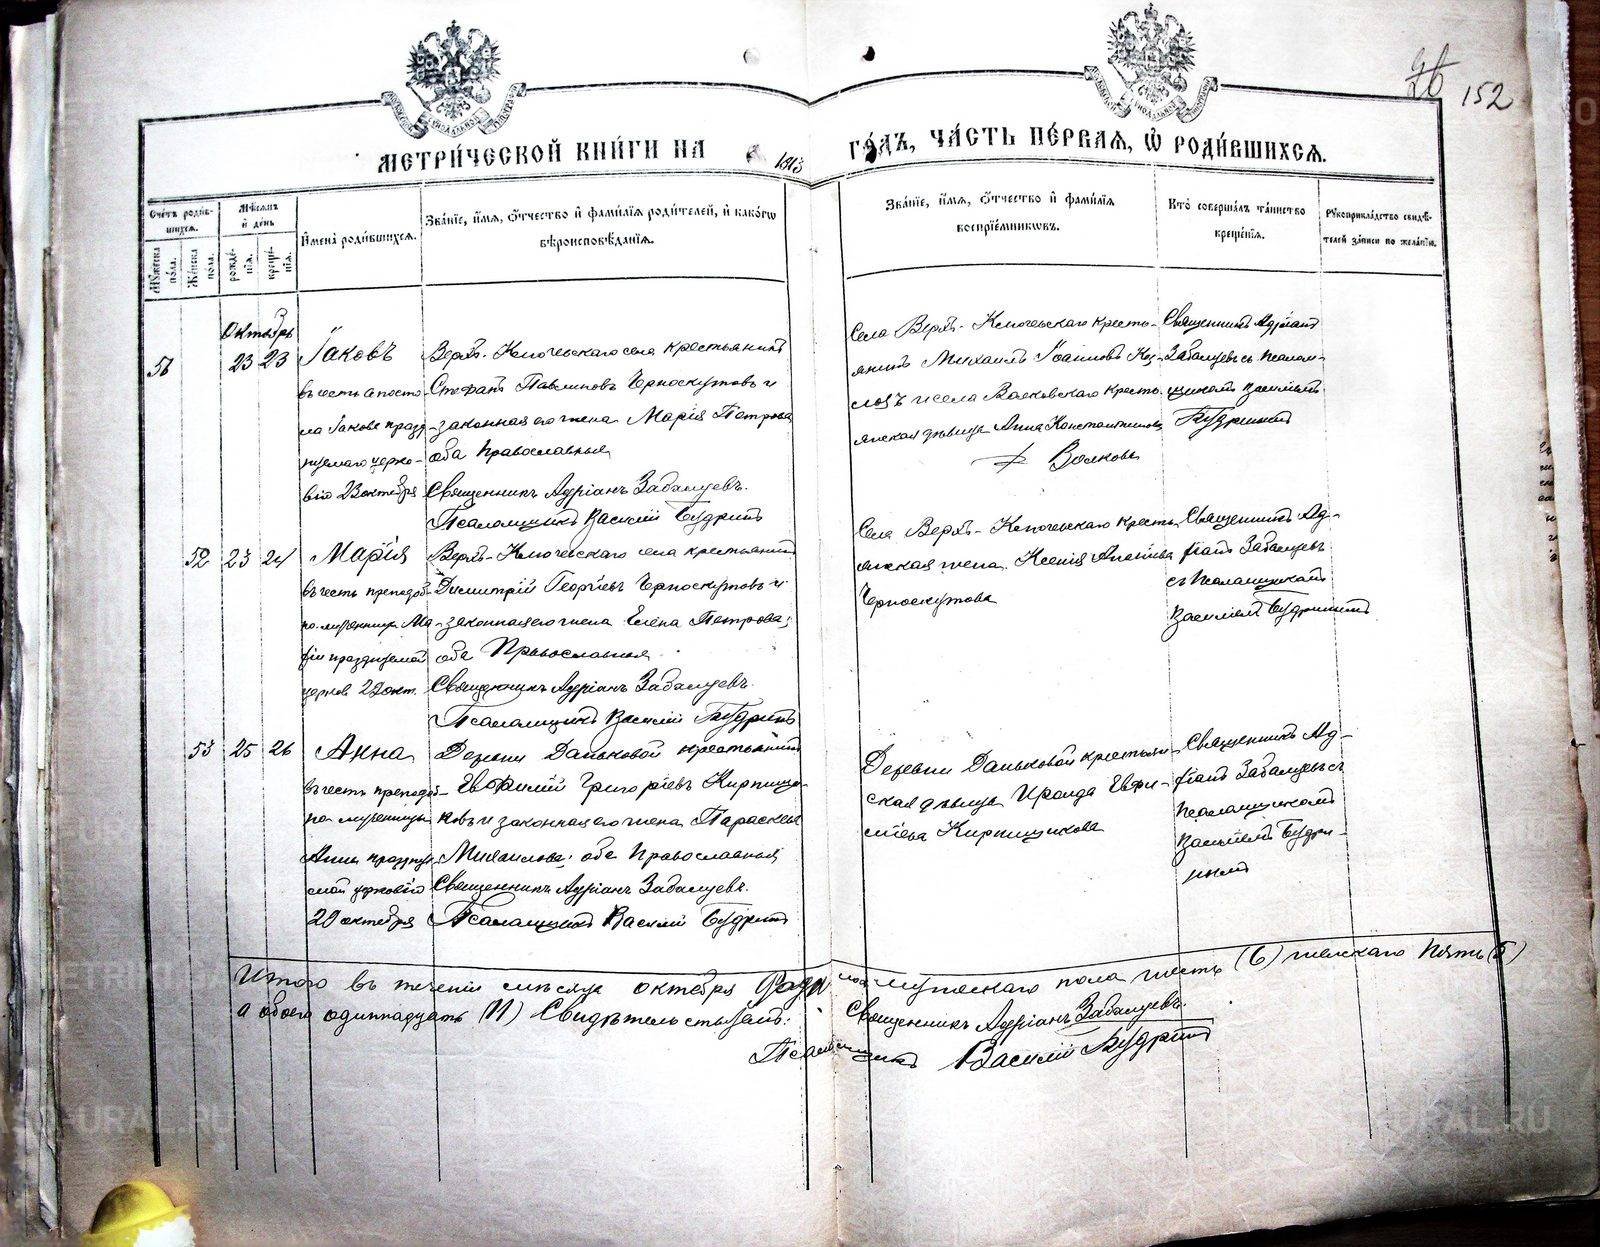 152
МЕТРИ́ЧЕСКОЙ КНИ́ГИ НА 1913 ГО́ДЪ, ЧА́СТЬ ПЕ́РВАЯ, Ѿ РОДИ́ВШИХСЯ.
Счетъ роди́вшихся.
Му́жеска по́ла.
Же́нска по́ла.
Мѣ́сяцъ и де́нь
рожде́нія.
креще́нія.
Имена̀ роди́вшихся.
Зва́ніе, и́мя, о́тчество и фами́лія роди́телей, и како́гѡ
вѣроисповѣ́данія.
Зва́ніе, и́мя, о́тчество и фами́лія
воспріе́мниковъ.
Кто̀ соверша́лъ та́инство
креще́нія.
Рукоприкла́дство свидѣ́-
телей за́писи по жела́нію.
Октябрь
56 23 23 Іаковъ
въ честь апосто-
ла Іакова празд-
нуемаго церко-
вію 23 октября
Верхъ-Ключевскаго села крестьянинъ
Стефанъ Павлиновъ Черноскутовъ и
законная его жена Марія Петрова
оба Православные
Священникъ Адріанъ Забалуевъ.
Псаломщикъ Василій Будринъ
Села Верхъ-Ключевскаго кресть-
янинъ Михаилъ Іоанновъ Коз-
ловъ и села Волковскаго кресть-
янская дѣвица Анна Константинова
Волкова
Священникъ Адріанъ
Забалуевъ съ псалом-
щикомъ Василіемъ
Будринымъ
52 23 24 Марія
въ честь преподоб-
но-мученицы Ма-
ріи празднуемой
церков. 29 окт.
Верхъ-Ключевскаго села крестьянинъ
Димитрій Георгіевъ Черноскутовъ и
законная его жена Елена Петрова;
оба Православные
Священникъ Адріанъ Забалуевъ.
Псаломщикъ Василій Будринъ
Села Верхъ-Ключевскаго кресть-
янская жена Ксенія
Черноскутова
Священникъ Ад-
ріанъ Забалуевъ
съ псаломщикомъ
Василіемъ Будринымъ
53 25 26 Анна
въ честь преподоб-
но-мученицы
Анны празднуе-
мой церковію
29 октября
Деревни Даньковой крестьянинъ
Евфимій Григоріевъ Кирпищи-
ковъ и законная его жена Параскева
Михаилова; оба Православные
Священникъ Адріанъ Забалуевъ.
Псаломщикъ Василій Будринъ
Деревни Даньковой крестьян-
ская дѣвица Ираида Евфи-
міева Кирпищикова
Священникъ Ад-
ріанъ Забалуевъ съ
псаломщикомъ
Василіемъ Будри-
нымъ
Итого въ теченіи мѣсяца октября родилось мужескаго пола шесть (6) женскаго пять (5)
а обоего одиннадцать (11) Свидѣтельствуемъ:
Священникъ Адріанъ Забалуевъ.
Псаломщикъ Василій Будринъ